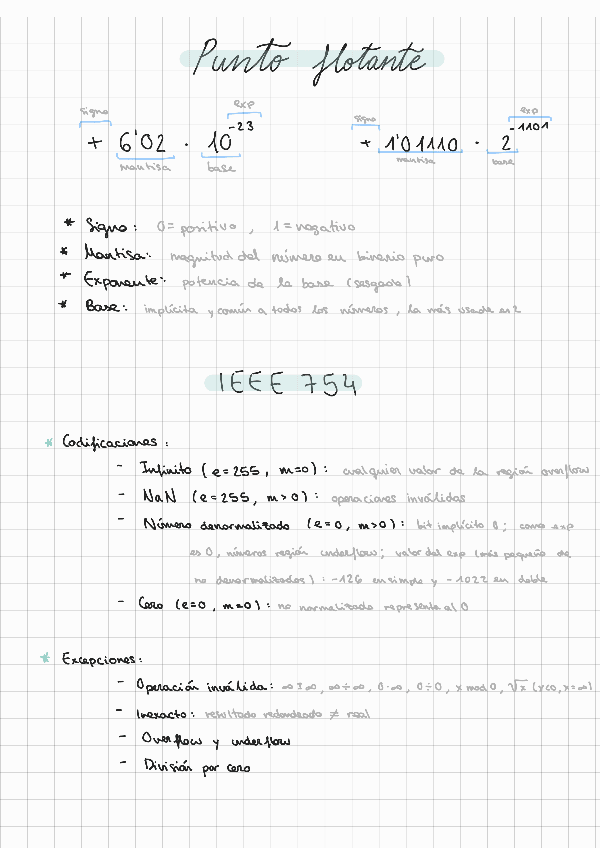 Punto flotante
signo exp signo exp
+ 6'02 · 10^-23 + 1'01110 · 2^-1101
mantisa base mantisa base
* Signo: 0 = positivo, 1 = negativo
* Mantisa: magnitud del número en binario puro
* Exponente: potencia de la base (sesgada)
* Base: implícita y común a todos los números, la más usada es 2
IEEE 754
* Codificaciones:
- Infinito (e=255, m=0): cualquier valor de la región overflow
- NaN (e=255, m>0): operaciones inválidas
- Número denormalizado (e=0, m>0): bit implícito 0; como exp
es 0, números región underflow; valor del exp (más pequeño de
no denormalizados): -126 en simple y -1022 en doble
- Cero (e=0, m=0): no normalizado representa al 0
* Excepciones:
- Operación inválida: ∞±∞, ∞÷∞, 0·∞, 0÷0, x mod 0, √x (x<0, x=∞)
- Inexacto: resultado redondeado ≠ real
- Overflow y underflow
- División por cero